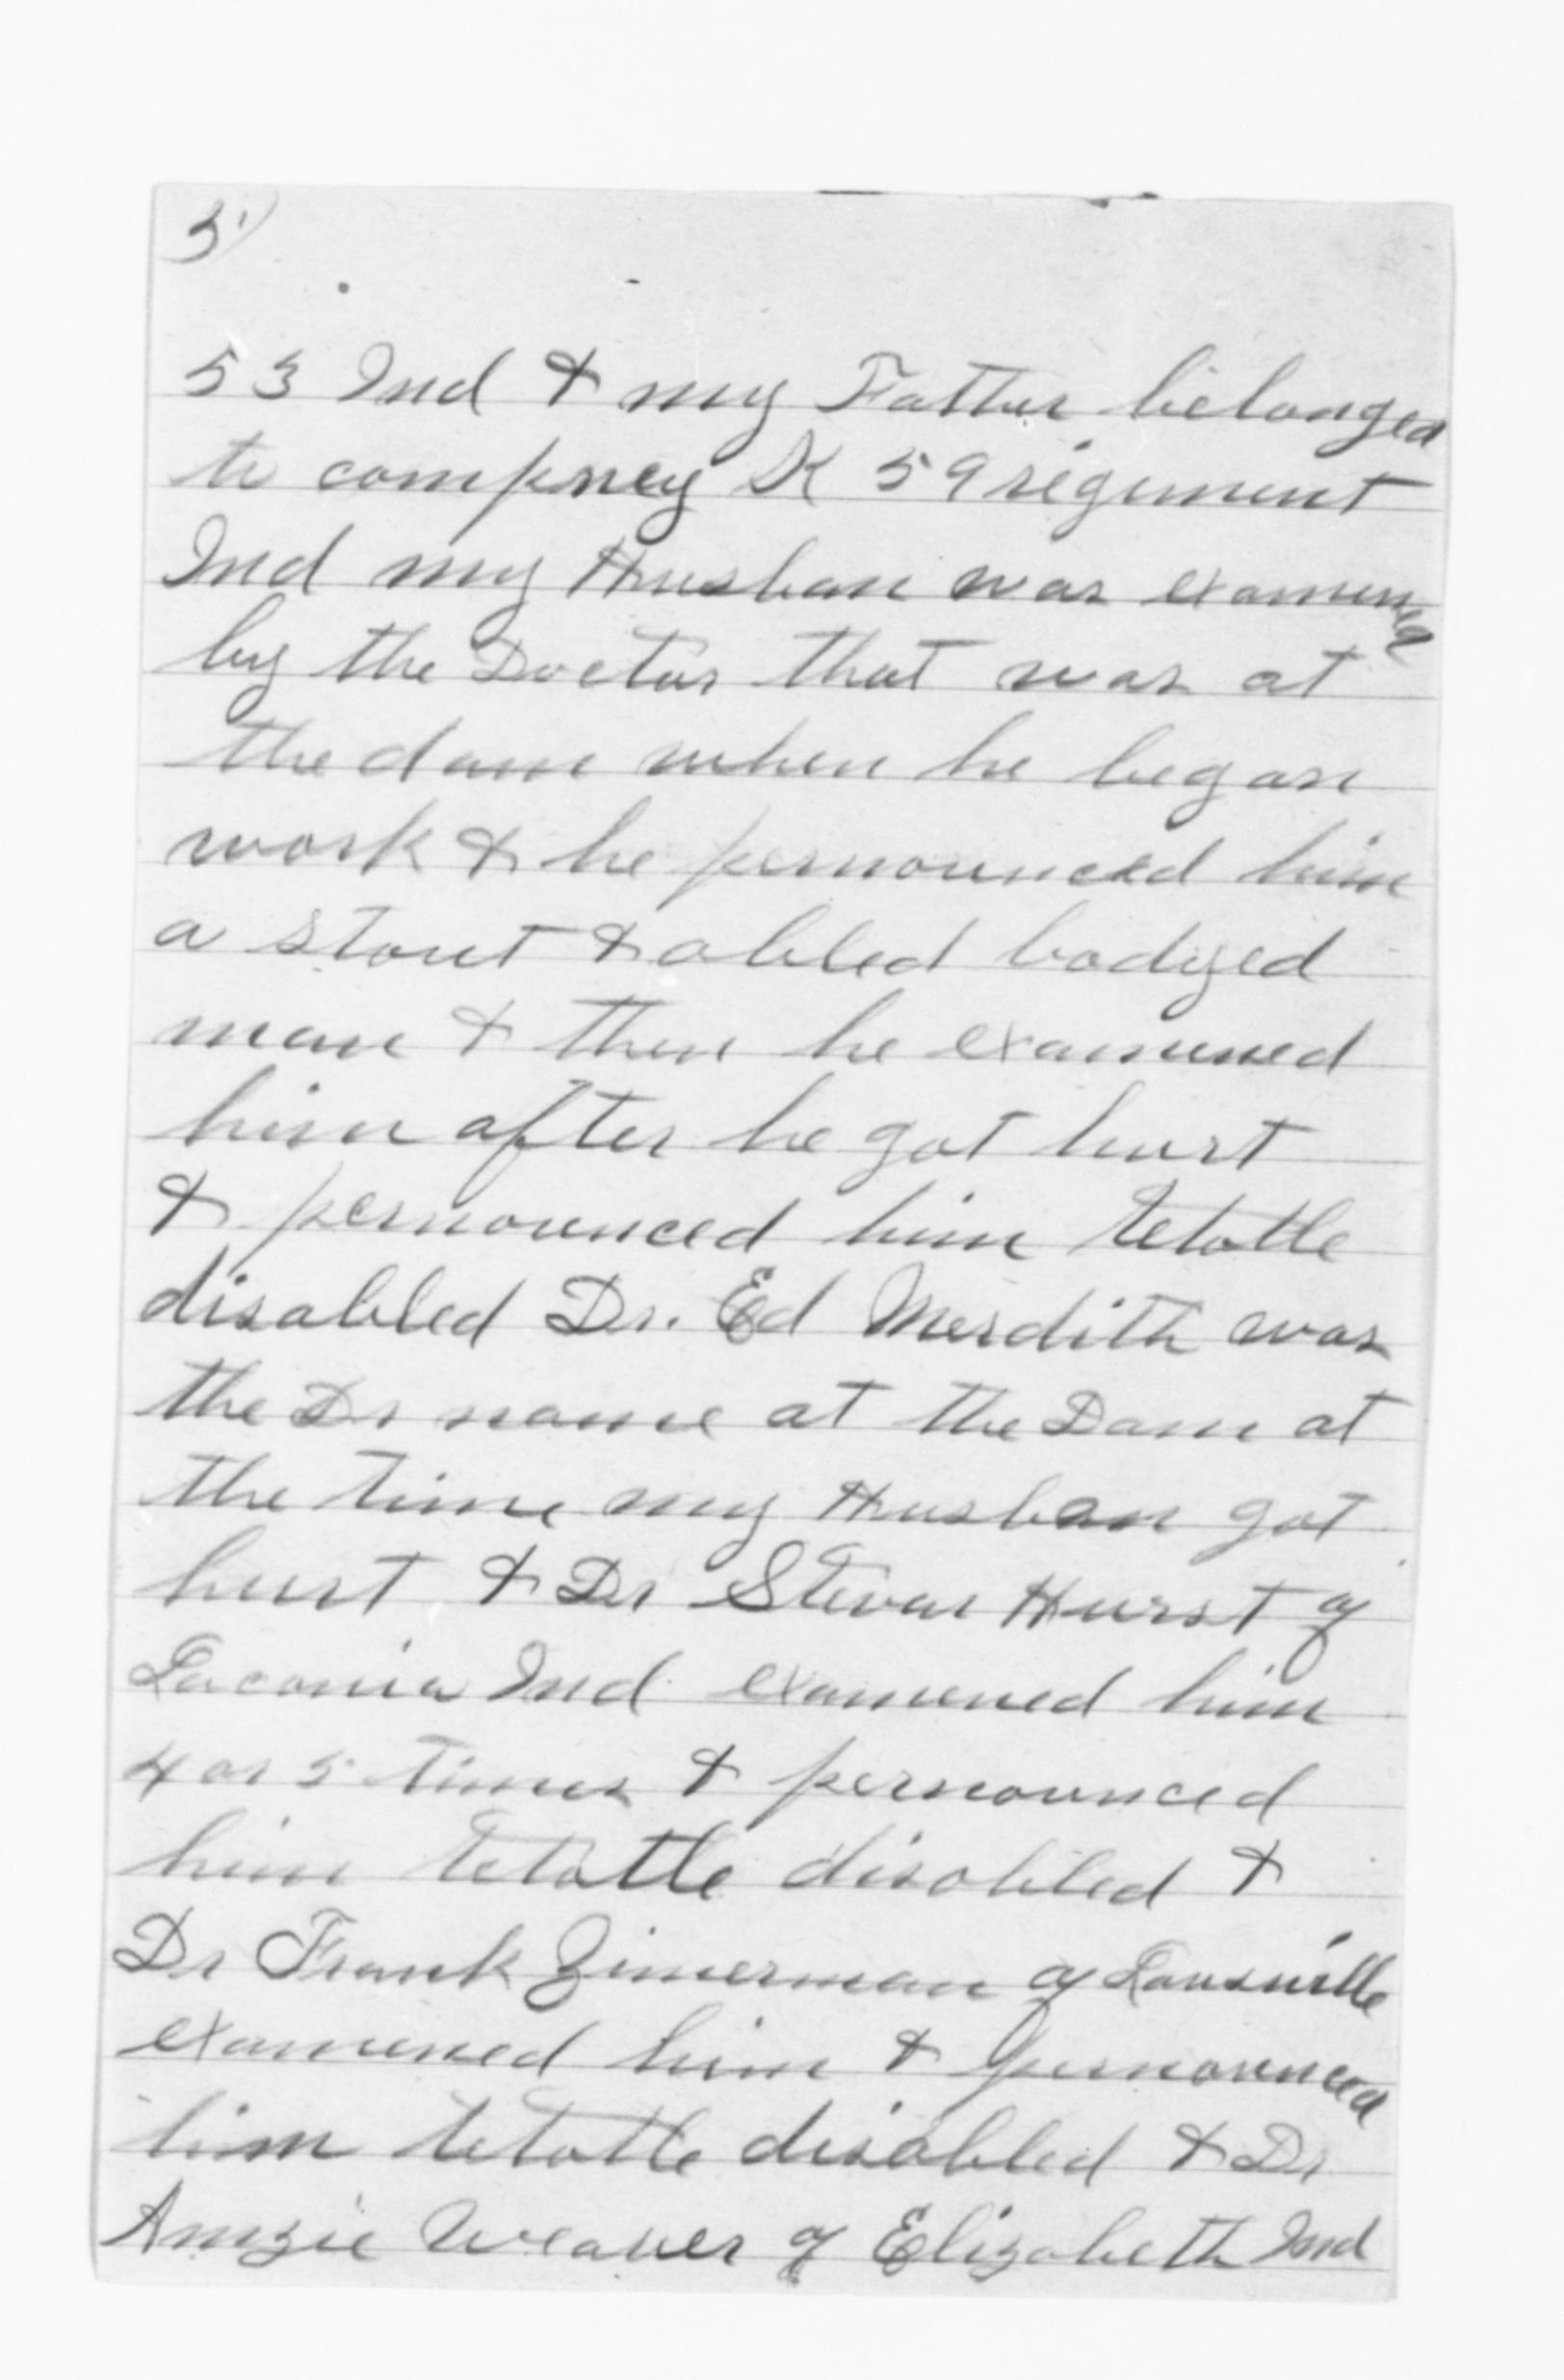 5)
53 Ind & my Father belonged
to compney K 59 regiment
Ind my Husban was examened
by the Doctor that was at
the dam when he began
work & he pernounced him
a stout & abled bodyed
man & then he examened
him after he got hurt
& pernounced him tetotle
disabled Dr. Ed Merdith was
the Dr name at the Dam at
the time my Husban got
hurt & Dr Stevan Hurst of
Laconia Ind examened him
4 or 5 times & pernounced
him tetotle disabled &
Dr Frank Zimerman of Lousville
examened him & pernounced
him tetotle disabled & Dr
Amzie Weaver of Elizabeth Ind